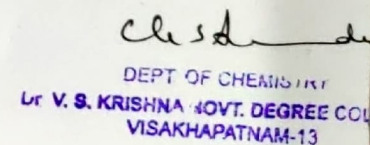 DEPT OF CHEMISTRY
Dr V. S. KRISHNA GOVT. DEGREE COL
VISAKHAPATNAM-13